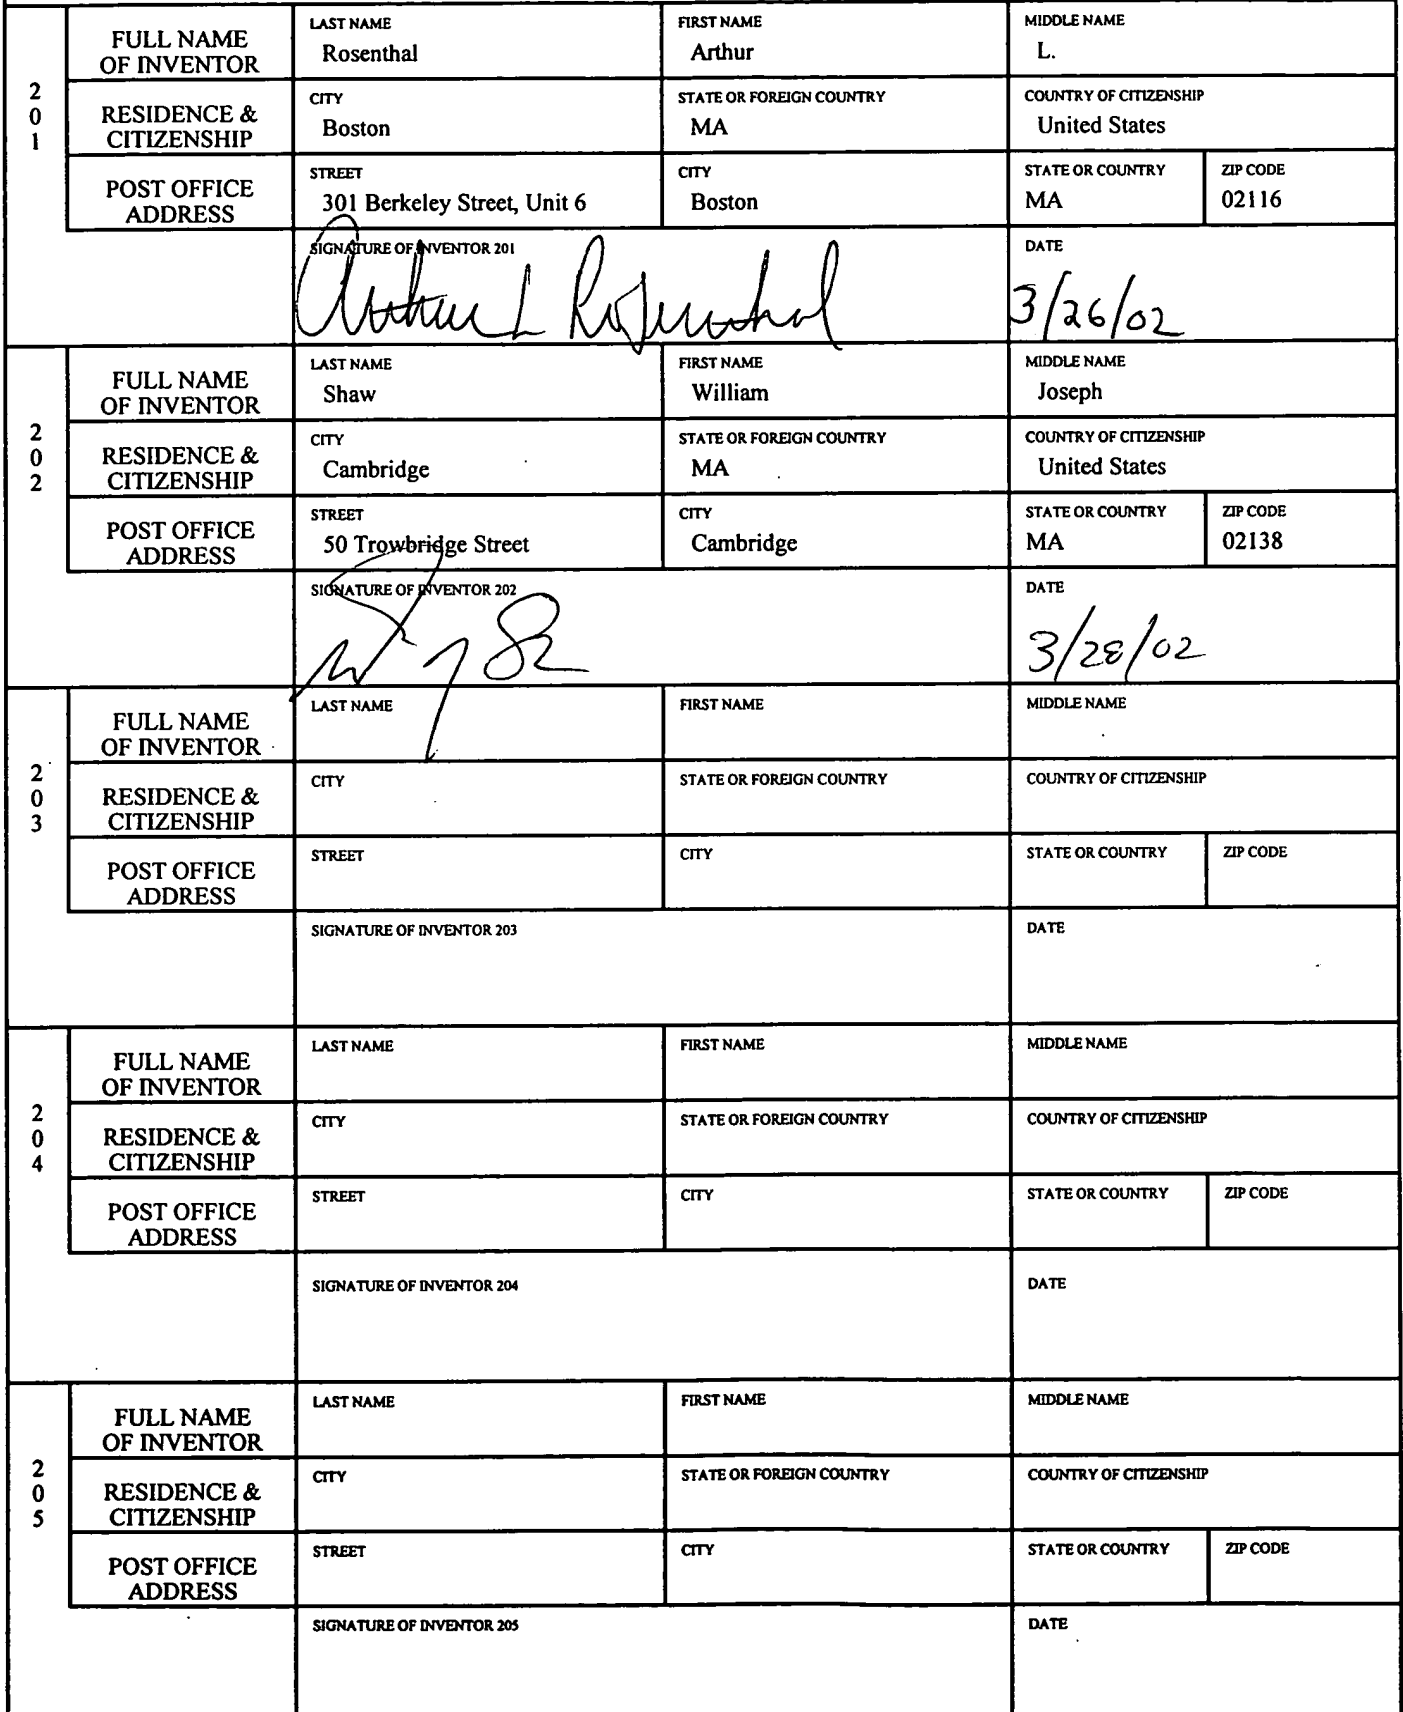 201
FULL NAME OF INVENTOR
LAST NAME
Rosenthal
FIRST NAME
Arthur
MIDDLE NAME
L.
RESIDENCE & CITIZENSHIP
CITY
Boston
STATE OR FOREIGN COUNTRY
MA
COUNTRY OF CITIZENSHIP
United States
POST OFFICE ADDRESS
STREET
301 Berkeley Street, Unit 6
CITY
Boston
STATE OR COUNTRY
MA
ZIP CODE
02116
SIGNATURE OF INVENTOR 201
Arthur L Rosenthal
DATE
3/26/02
202
FULL NAME OF INVENTOR
LAST NAME
Shaw
FIRST NAME
William
MIDDLE NAME
Joseph
RESIDENCE & CITIZENSHIP
CITY
Cambridge
STATE OR FOREIGN COUNTRY
MA
COUNTRY OF CITIZENSHIP
United States
POST OFFICE ADDRESS
STREET
50 Trowbridge Street
CITY
Cambridge
STATE OR COUNTRY
MA
ZIP CODE
02138
SIGNATURE OF INVENTOR 202
DATE
3/28/02
203
FULL NAME OF INVENTOR
LAST NAME
FIRST NAME
MIDDLE NAME
RESIDENCE & CITIZENSHIP
CITY
STATE OR FOREIGN COUNTRY
COUNTRY OF CITIZENSHIP
POST OFFICE ADDRESS
STREET
CITY
STATE OR COUNTRY
ZIP CODE
SIGNATURE OF INVENTOR 203
DATE
204
FULL NAME OF INVENTOR
LAST NAME
FIRST NAME
MIDDLE NAME
RESIDENCE & CITIZENSHIP
CITY
STATE OR FOREIGN COUNTRY
COUNTRY OF CITIZENSHIP
POST OFFICE ADDRESS
STREET
CITY
STATE OR COUNTRY
ZIP CODE
SIGNATURE OF INVENTOR 204
DATE
205
FULL NAME OF INVENTOR
LAST NAME
FIRST NAME
MIDDLE NAME
RESIDENCE & CITIZENSHIP
CITY
STATE OR FOREIGN COUNTRY
COUNTRY OF CITIZENSHIP
POST OFFICE ADDRESS
STREET
CITY
STATE OR COUNTRY
ZIP CODE
SIGNATURE OF INVENTOR 205
DATE